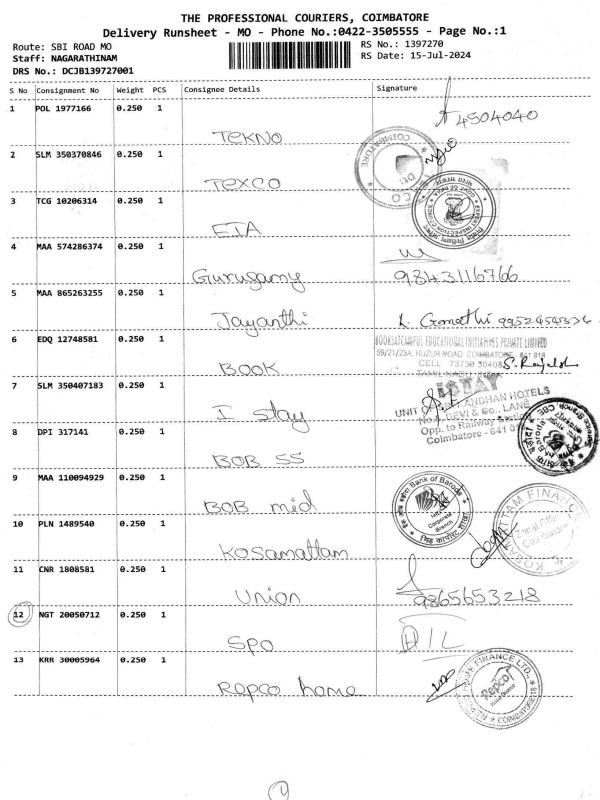 THE PROFESSIONAL COURIERS, COIMBATORE
Delivery Runsheet - MO - Phone No.:0422-3505555 - Page No.:1
Route: SBI ROAD MO
RS No.: 1397270
Staff: NAGARATHINAM
RS Date: 15-Jul-2024
DRS No.: DCJB139727001
S No Consignment No Weight PCS Consignee Details Signature
1 POL 1977166 0.250 1
4504040
TEKNO
2 SLM 350370846 0.250 1
COIMBATORE
TEXCO
3 TCG 10206314 0.250 1
EXPORT INSPECTION COUNCIL
EIA
4 MAA 574286374 0.250 1
Gurusamy 9843116766
5 MAA 865263255 0.250 1
Jayanthi L. Gomathi
6 EDQ 12748581 0.250 1
BOOKSATCAMPUS EDUCATIONAL INITIATIVES PRIVATE LIMITED
59/21/23A, HUZUR ROAD, COIMBATORE - 641 018
CELL 73730 30408
TAMIL NADU, INDIA
BOOK
7 SLM 350407183 0.250 1
ISTAY
HOTELS
No.4, DEVI & Co., LANE
Opp. to Railway Station
Coimbatore - 641 01
I stay
8 DPI 317141 0.250 1
BOB SS
9 MAA 110094929 0.250 1
Bank of Baroda
Corporate
Branch
BOB mid
10 PLN 1489540 0.250 1
KOSAMATTAM FINANCE
Zonal Office
Coimbatore
Kosamattam
11 CNR 1808581 0.250 1
Union 9365653218
12 NGT 20050712 0.250 1
SPO
13 KRR 30005964 0.250 1
HOME FINANCE LTD.,
Repco
COIMBATORE-18
Repco home